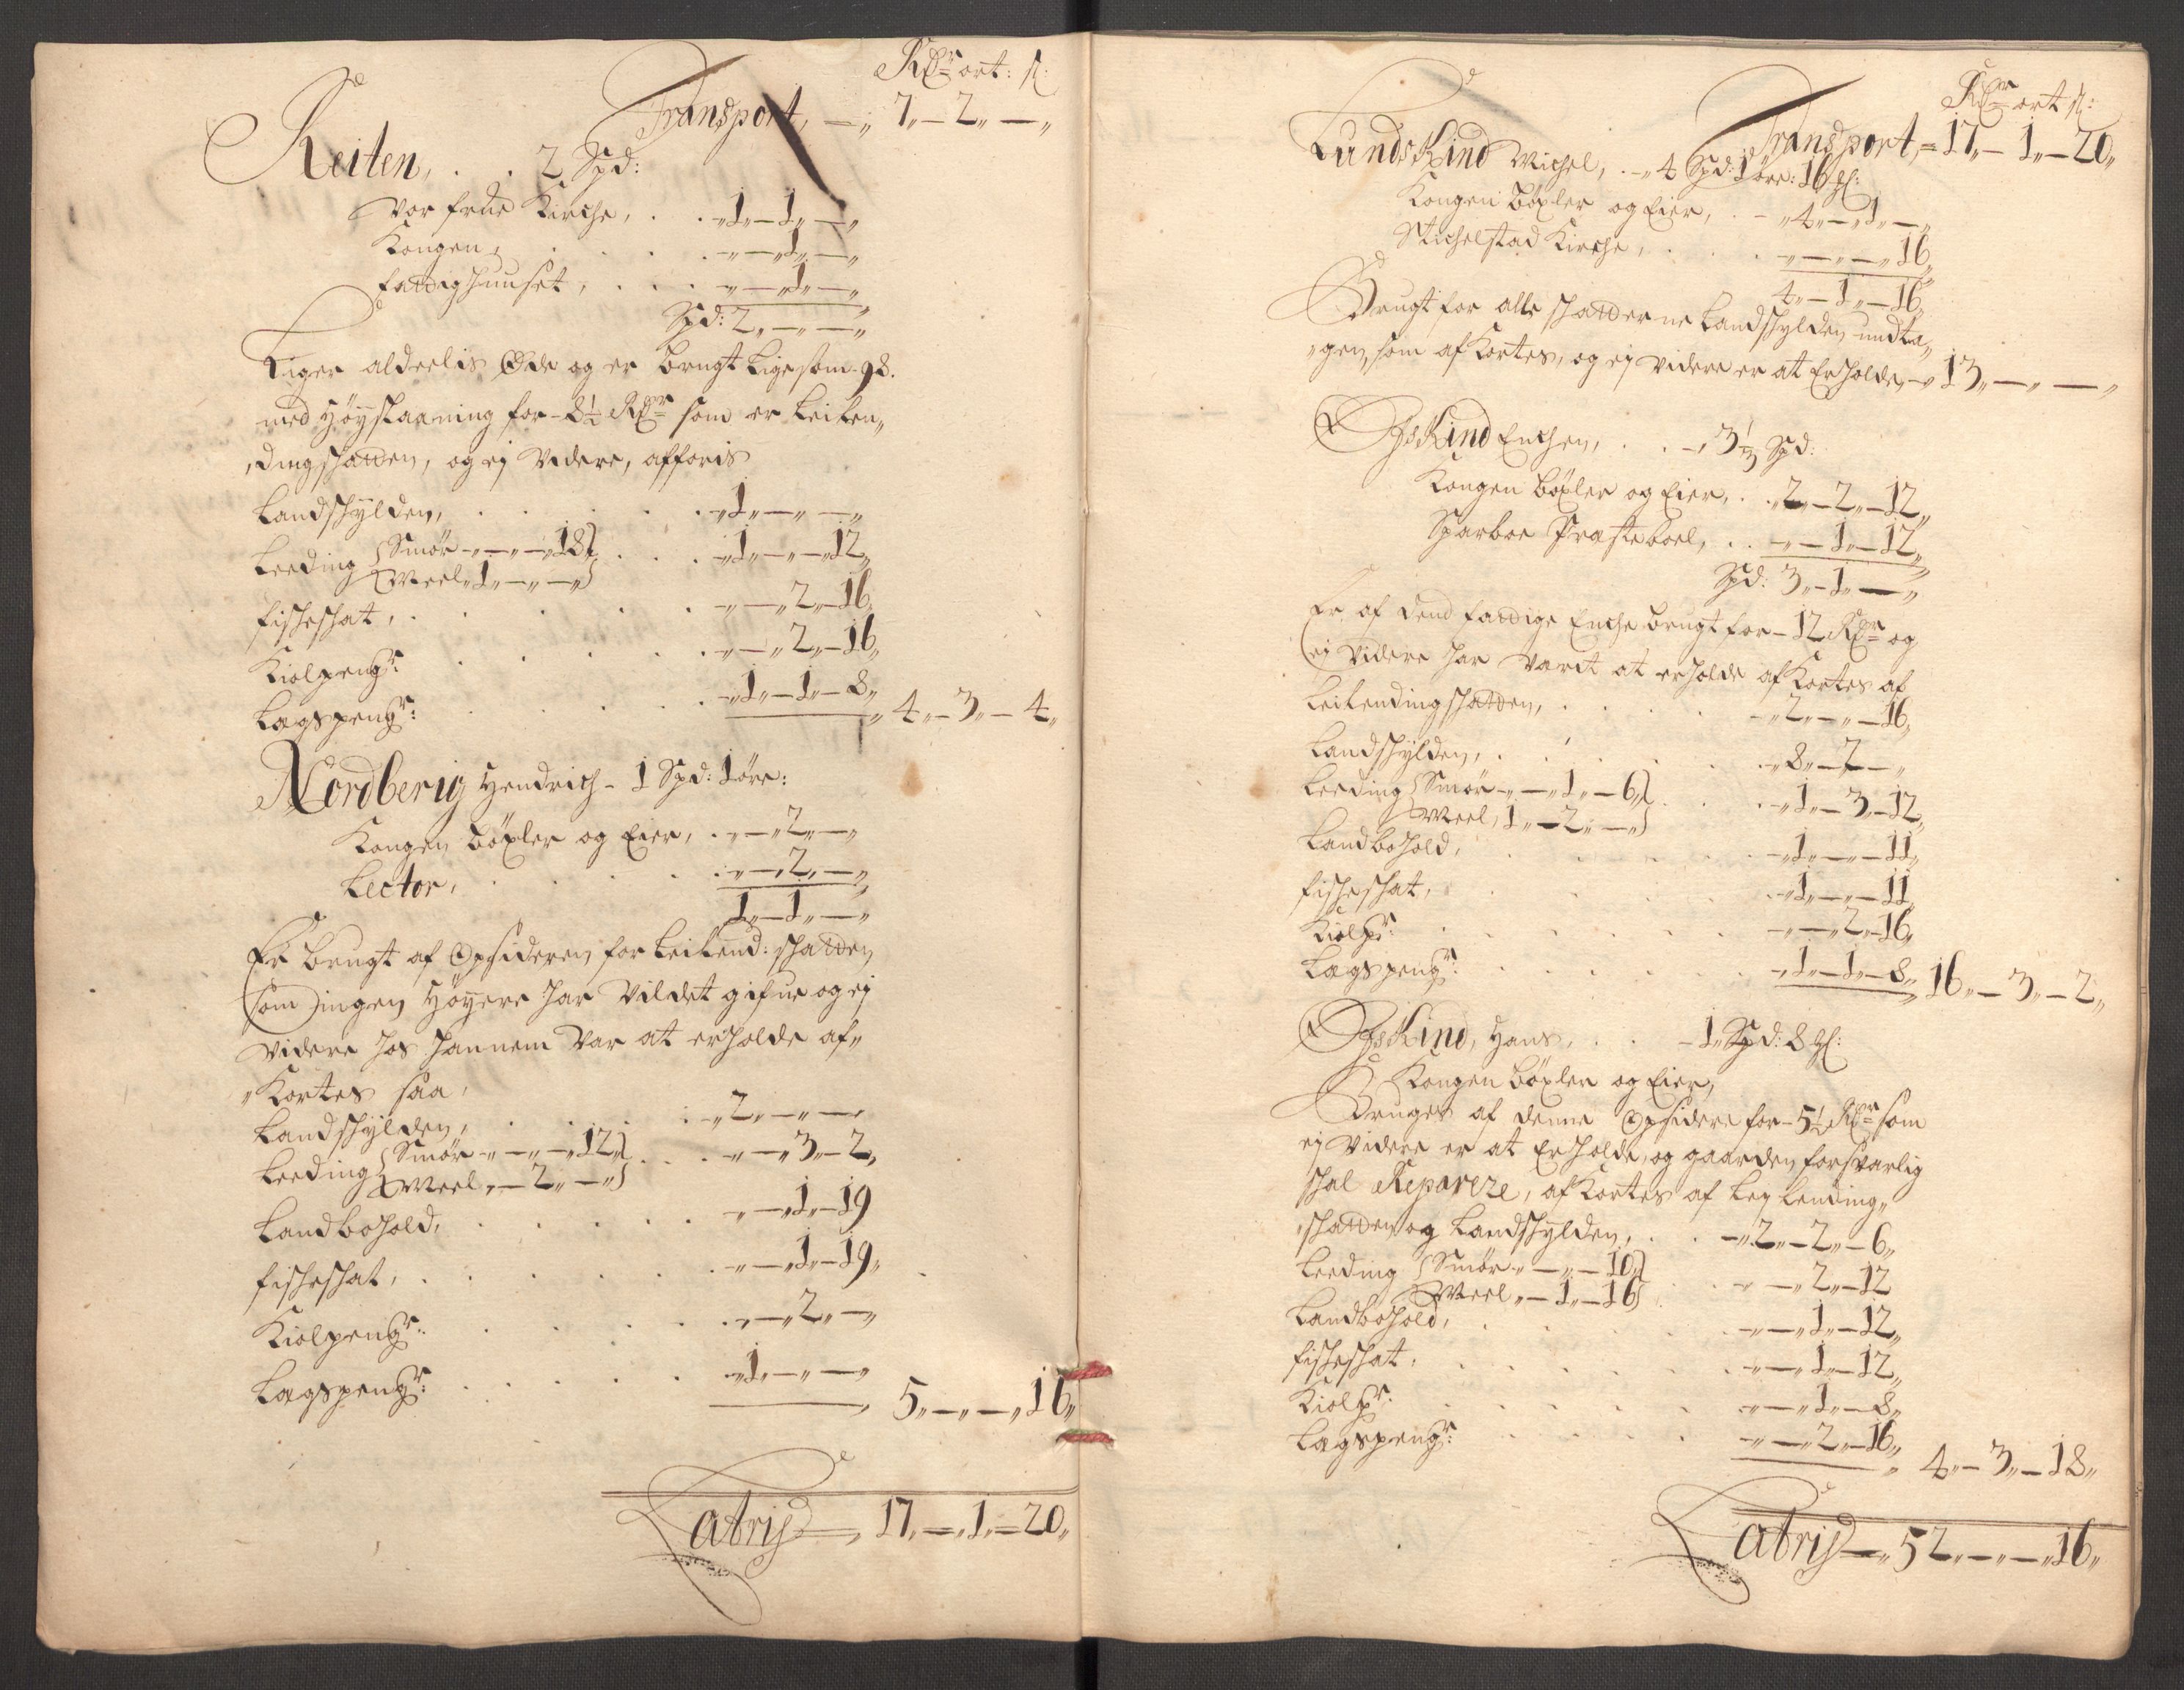 Rdr ort: s:
Transport, — „ 7„ — 2„ — „
Reiten, . . 2 Spd:
Vor frue Kirche, . . „ 1„ — 1„ — „
Kongen, . . . . „ — „ 1„ — „
fattighuuset, . . . „ — „ 1„ — „
Spd: 2„ — „ — „
Liger aldeelis Øde og er brugt ligesom 98.
med Høyslaaning for 8½ Rdr som er leilen„
„dingschatten, og ej videre, afforis
Landschylden, . . . . „ 1„ — „ — „
Leeding {Smör „ — „ — „ 18„} . . . „ 1„ — „ — 12„
{Meel „ 1„ — „ — „}
fischeschat, . . . . „ — „ 2„ — 16„
Kiolpengr: . . . . „ — „ 2„ — 16„
Lagspengr: . . . . „ 1„ — 1„ — 8„ „ 4„ — 3„ — 4„
Nordberig Hendrich - 1 Spd: 1 øre:
Kongen böxler og Eier, . „ — „ 2„ — „
Lector, . . . . „ — „ 2„ — „
1„ — 1„ — „
Er brugt af Opsideren for leilend: schatten
som ingen Høyere har vildet gifue og ej
videre hos hannem var at erholde af„
„Kortes saa,
Landschylden, . . . . „ 2„ — „ — „
Leeding {Smör „ — „ — „ 12„} . . . „ — „ 3„ — 2„
{Meel „ — 2„ — „}
Landbohold, . . . . „ — „ 1„ — 19
fischeschat, . . . . „ — „ 1„ — 19„
Kiolpengr: . . . . „ — „ 2„ — „
Lagspengr: . . . . „ 1„ — „ — „ 5„ — „ — „ 16„
Latris — „ 17„ — „ 1„ — 20„
Rdr ort s:
Transport, — 17„ — 1„ — 20„
LundsKind Michel, . — „ 4 Spd: 1 øre: 16
Kongen böxler og Eier, . — „ 4„ — „ 1„ — „
Stichelstad Kirche, . . . „ — „ — „ 16„
4„ — 1„ — 16„
Brugt for alle schatterne Landschylden undta„
„gen, som afKortes, og ej videre er at Erholde, — „ 13„ — „ — „
OpsKind Enchen, . . — „ 3⅓ Spd:
Kongen böxler og Eier, . . „ 2„ — 2„ — 12„
Sparboe Præsteboel, . . „ — „ 1„ — 12„
Spd: 3„ — 1„ — „
Er af dend fattige Enche brugt for 12 Rdr og
ej videre har værit at erholde afKortes af
leilendingschatten, . . . . „ 2„ — „ — 16„
Landschylden, . . . . „ 8„ — 2„ — „
Leeding {Smör „ — „ 1„ — 6„} . . . „ 1„ — 3„ — 12„
{Meel, 1„ — 2„ — „}
Landbohold, . . . . „ 1„ — „ — 11„
fischeschat, . . . . „ 1„ — „ — 11„
Kiolpr: . . . . „ — „ 2„ — 16„
Lagspengr: . . . . „ 1„ — 1„ — 8„ 16„ — 3„ — 2„
OpsKind, Hans, . . — 1„ Spd: 8
Kongen böxler og Eier,
Bruges af denne Opsidere for 5½ Rdr som
ej videre er at Erholde, og gaarden forsvarlig
schal Reparere, afKortes af leylending„
„schatten og Landschylden, . . „ 2„ — 2„ — 6„
Leeding {Smör „ — „ — 10„} . . „ — „ 2„ — 12
{Meel „ — 1„ — 16}
Landbohold, . . . . „ — „ 1„ — 12„
fischeschat, . . . . „ — „ 1„ — 12„
Kiolpr: . . . . „ — „ 1„ — 8„
Lagspengr: . . . . „ — „ 2„ — 16„ „ 4„ — 3„ — 18„
Latris — „ 52„ — „ — „ 16„